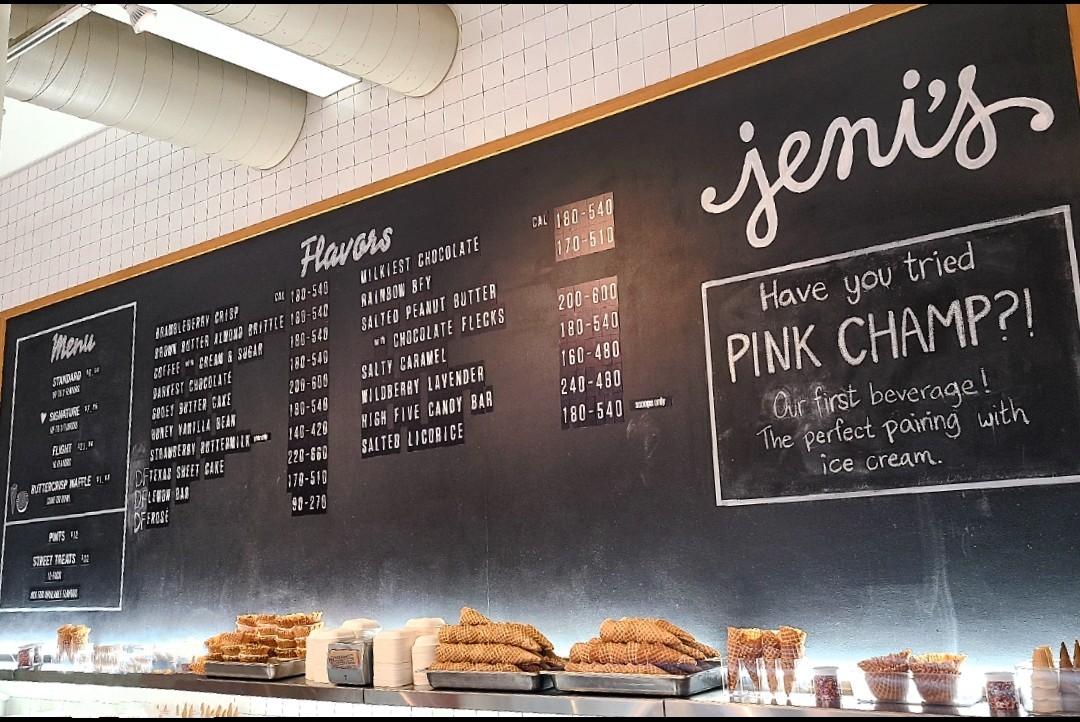 Menu
STANDARD
SIGNATURE
FLIGHT
BUTTERCRISP WAFFLE
PINTS $12
STREET TREATS
Flavors
CAL 180-540
BRAMBLEBERRY CRISP 180-540
BROWN BUTTER ALMOND BRITTLE 180-540
COFFEE WITH CREAM & SUGAR 180-540
DARKEST CHOCOLATE 200-600
GOOEY BUTTER CAKE 180-540
HONEY VANILLA BEAN 140-420
STRAWBERRY BUTTERMILK 220-660
DF TEXAS SHEET CAKE 170-510
DF LEMON BAR 90-270
DF FROSÉ
MILKIEST CHOCOLATE CAL 180-540
RAINBOW BFY 170-510
SALTED PEANUT BUTTER
WITH CHOCOLATE FLECKS 200-600
SALTY CARAMEL 180-540
WILDBERRY LAVENDER 160-480
HIGH FIVE CANDY BAR 240-480
SALTED LICORICE 180-540 scoops only
jeni's
Have you tried
PINK CHAMP?!
Our first beverage!
The perfect pairing with
ice cream.